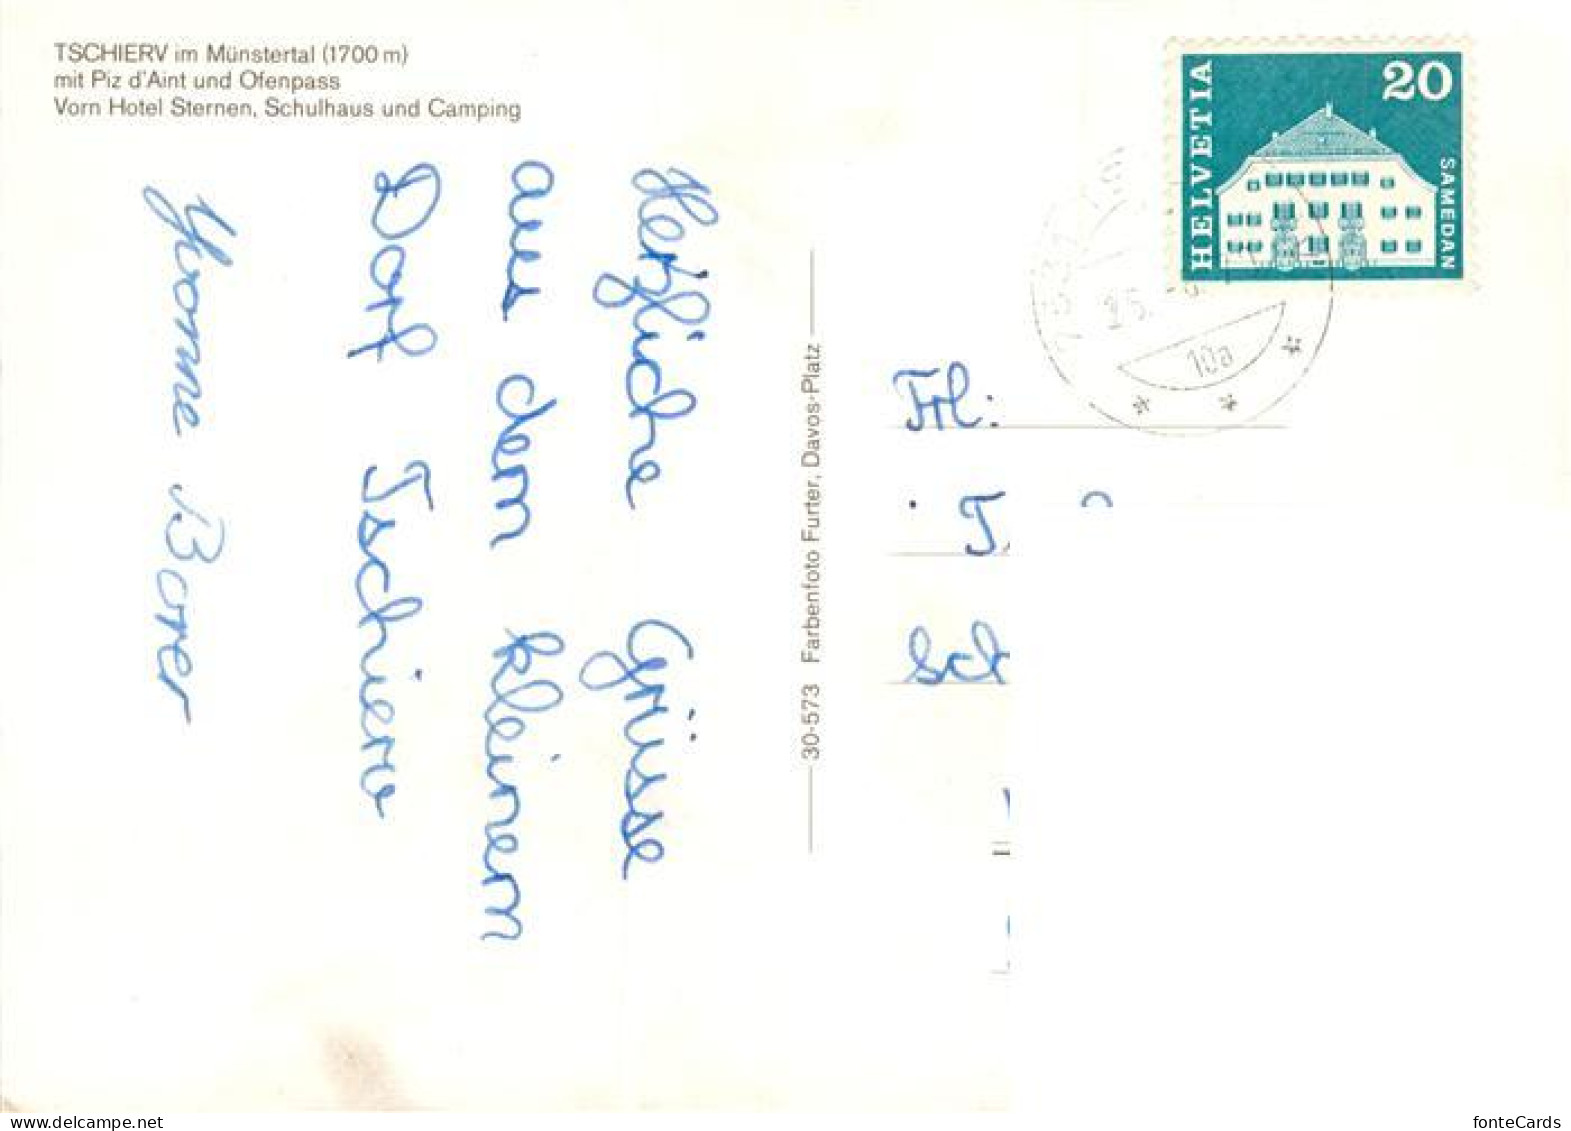 TSCHIERV im Münstertal (1700 m)
mit Piz d'Aint und Ofenpass
Vorn Hotel Sternen, Schulhaus und Camping
Herzliche Grüsse
aus dem kleinem
Dorf Tschierv
Yvonne Borer
30-573 Farbenfoto Furter, Davos-Platz
HELVETIA
20
SAMEDAN
10a
Frl:
delcampe.net
fonteCards